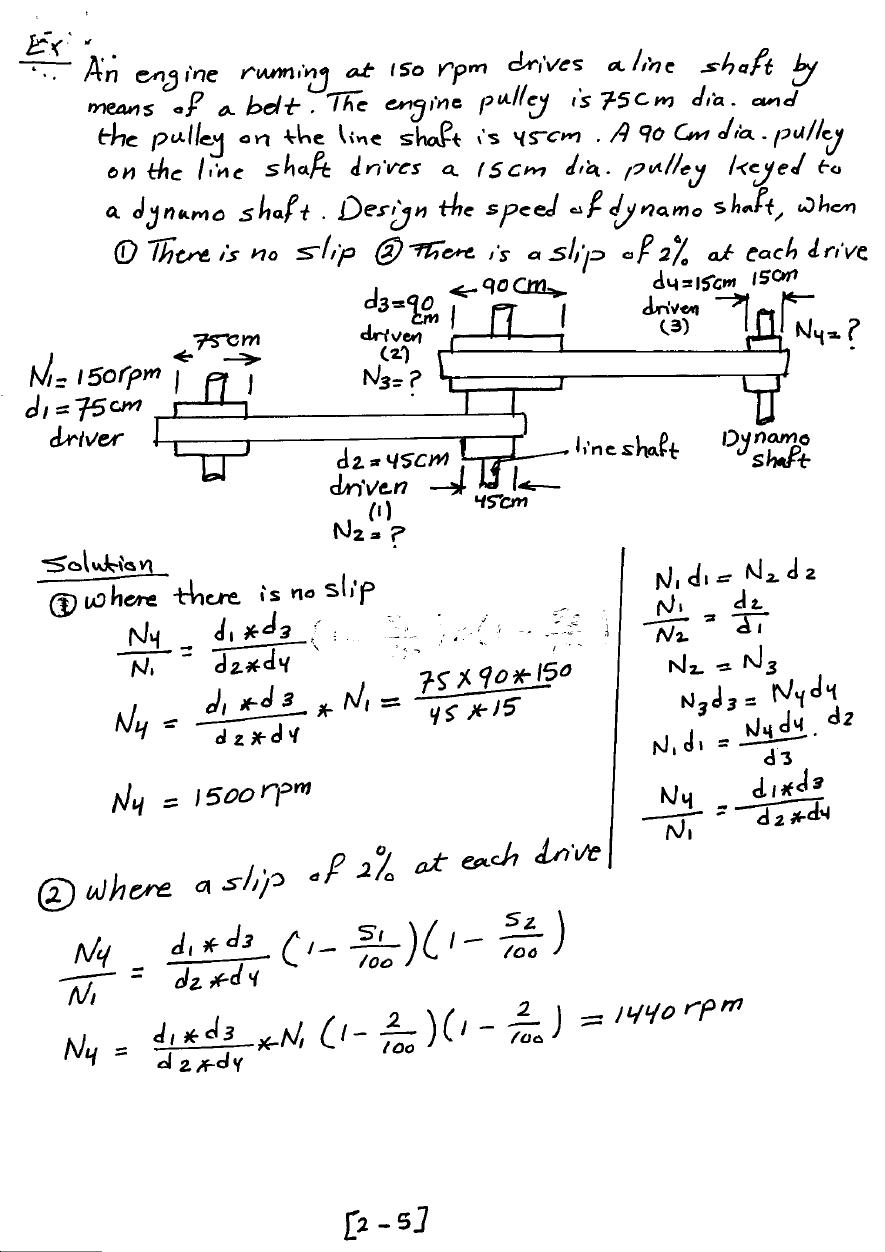 Ex
An engine running at 150 rpm drives a line shaft by
means of a belt. The engine pulley is 75cm dia. and
the pulley on the line shaft is 45cm. A 90 Cm dia. pulley
on the line shaft drives a 15cm dia. pulley keyed to
a dynamo shaft. Design the speed of dynamo shaft, when
① There is no slip ② There is a slip of 2% at each drive
90cm
d4=15cm 15cm
d3=90
cm
driven
(2)
N3=?
driven
(3)
N4=?
75cm
N1=150rpm
d1=75cm
driver
d2=45cm
driven
(1)
N2=?
line shaft
45cm
Dynamo
shaft
Solution
① where there is no slip
N4/N1 = d1*d3/d2*d4
N4 = d1*d3/d2*d4 * N1 = 75X90*150/45*15
N4 = 1500rpm
N1d1 = N2d2
N1/N2 = d2/d1
N2 = N3
N3d3 = N4d4
N1d1 = N4d4/d3 . d2
N4/N1 = d1*d3/d2*d4
② where a slip of 2% at each drive
N4/N1 = d1*d3/d2*d4 (1-S1/100)(1-S2/100)
N4 = d1*d3/d2*d4 *N1 (1-2/100)(1-2/100) = 1440rpm
[2-5]